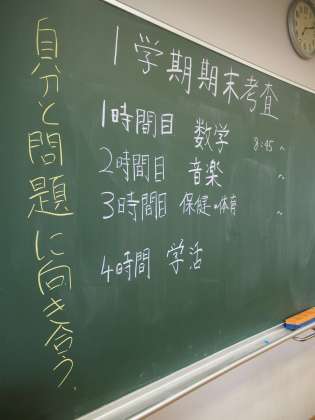 自分と問題に向き合う.
1学期期末考査
1時間目 数学 8:45~
2時間目 音楽
3時間目 保健・体育 ~
4時間 学活